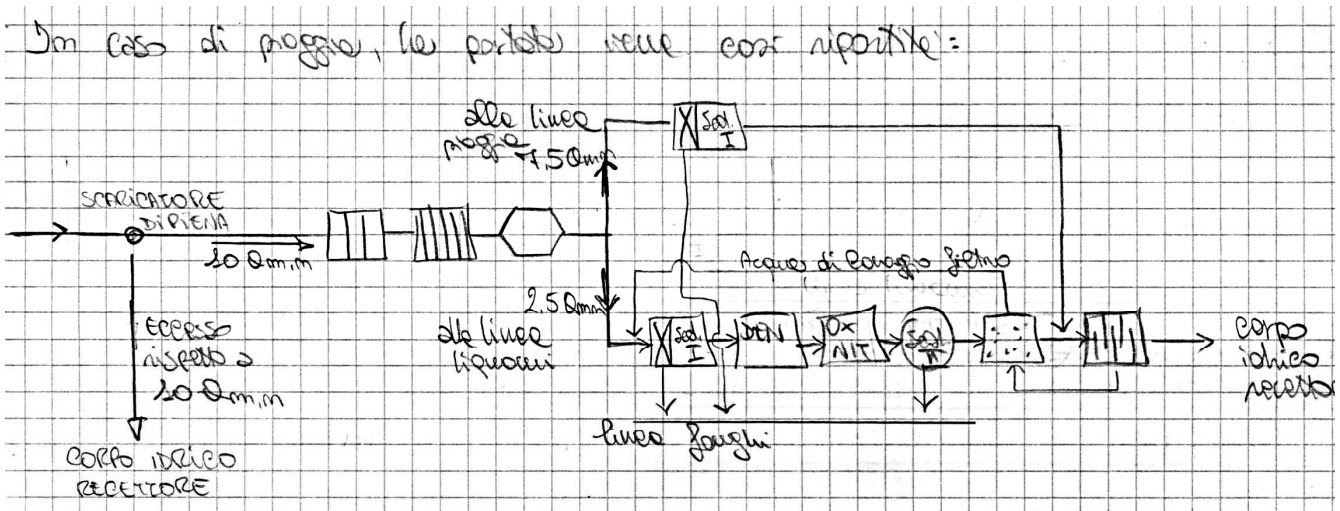 In caso di pioggia, la portata viene così ripartita:
alla linea
pioggia
7,5 Qmn
X Sed. I
SCARICATORE
DI PIENA
10 Qm,n
2,5 Qmn
alla linea
liquami
Acqua di lavaggio filtro
X Sed. I
DEN
OX
NIT
Sed. II
corpo
idrico
recettore
ECCESSO
rispetto a
10 Qm,n
linea fanghi
CORPO IDRICO
RECETTORE